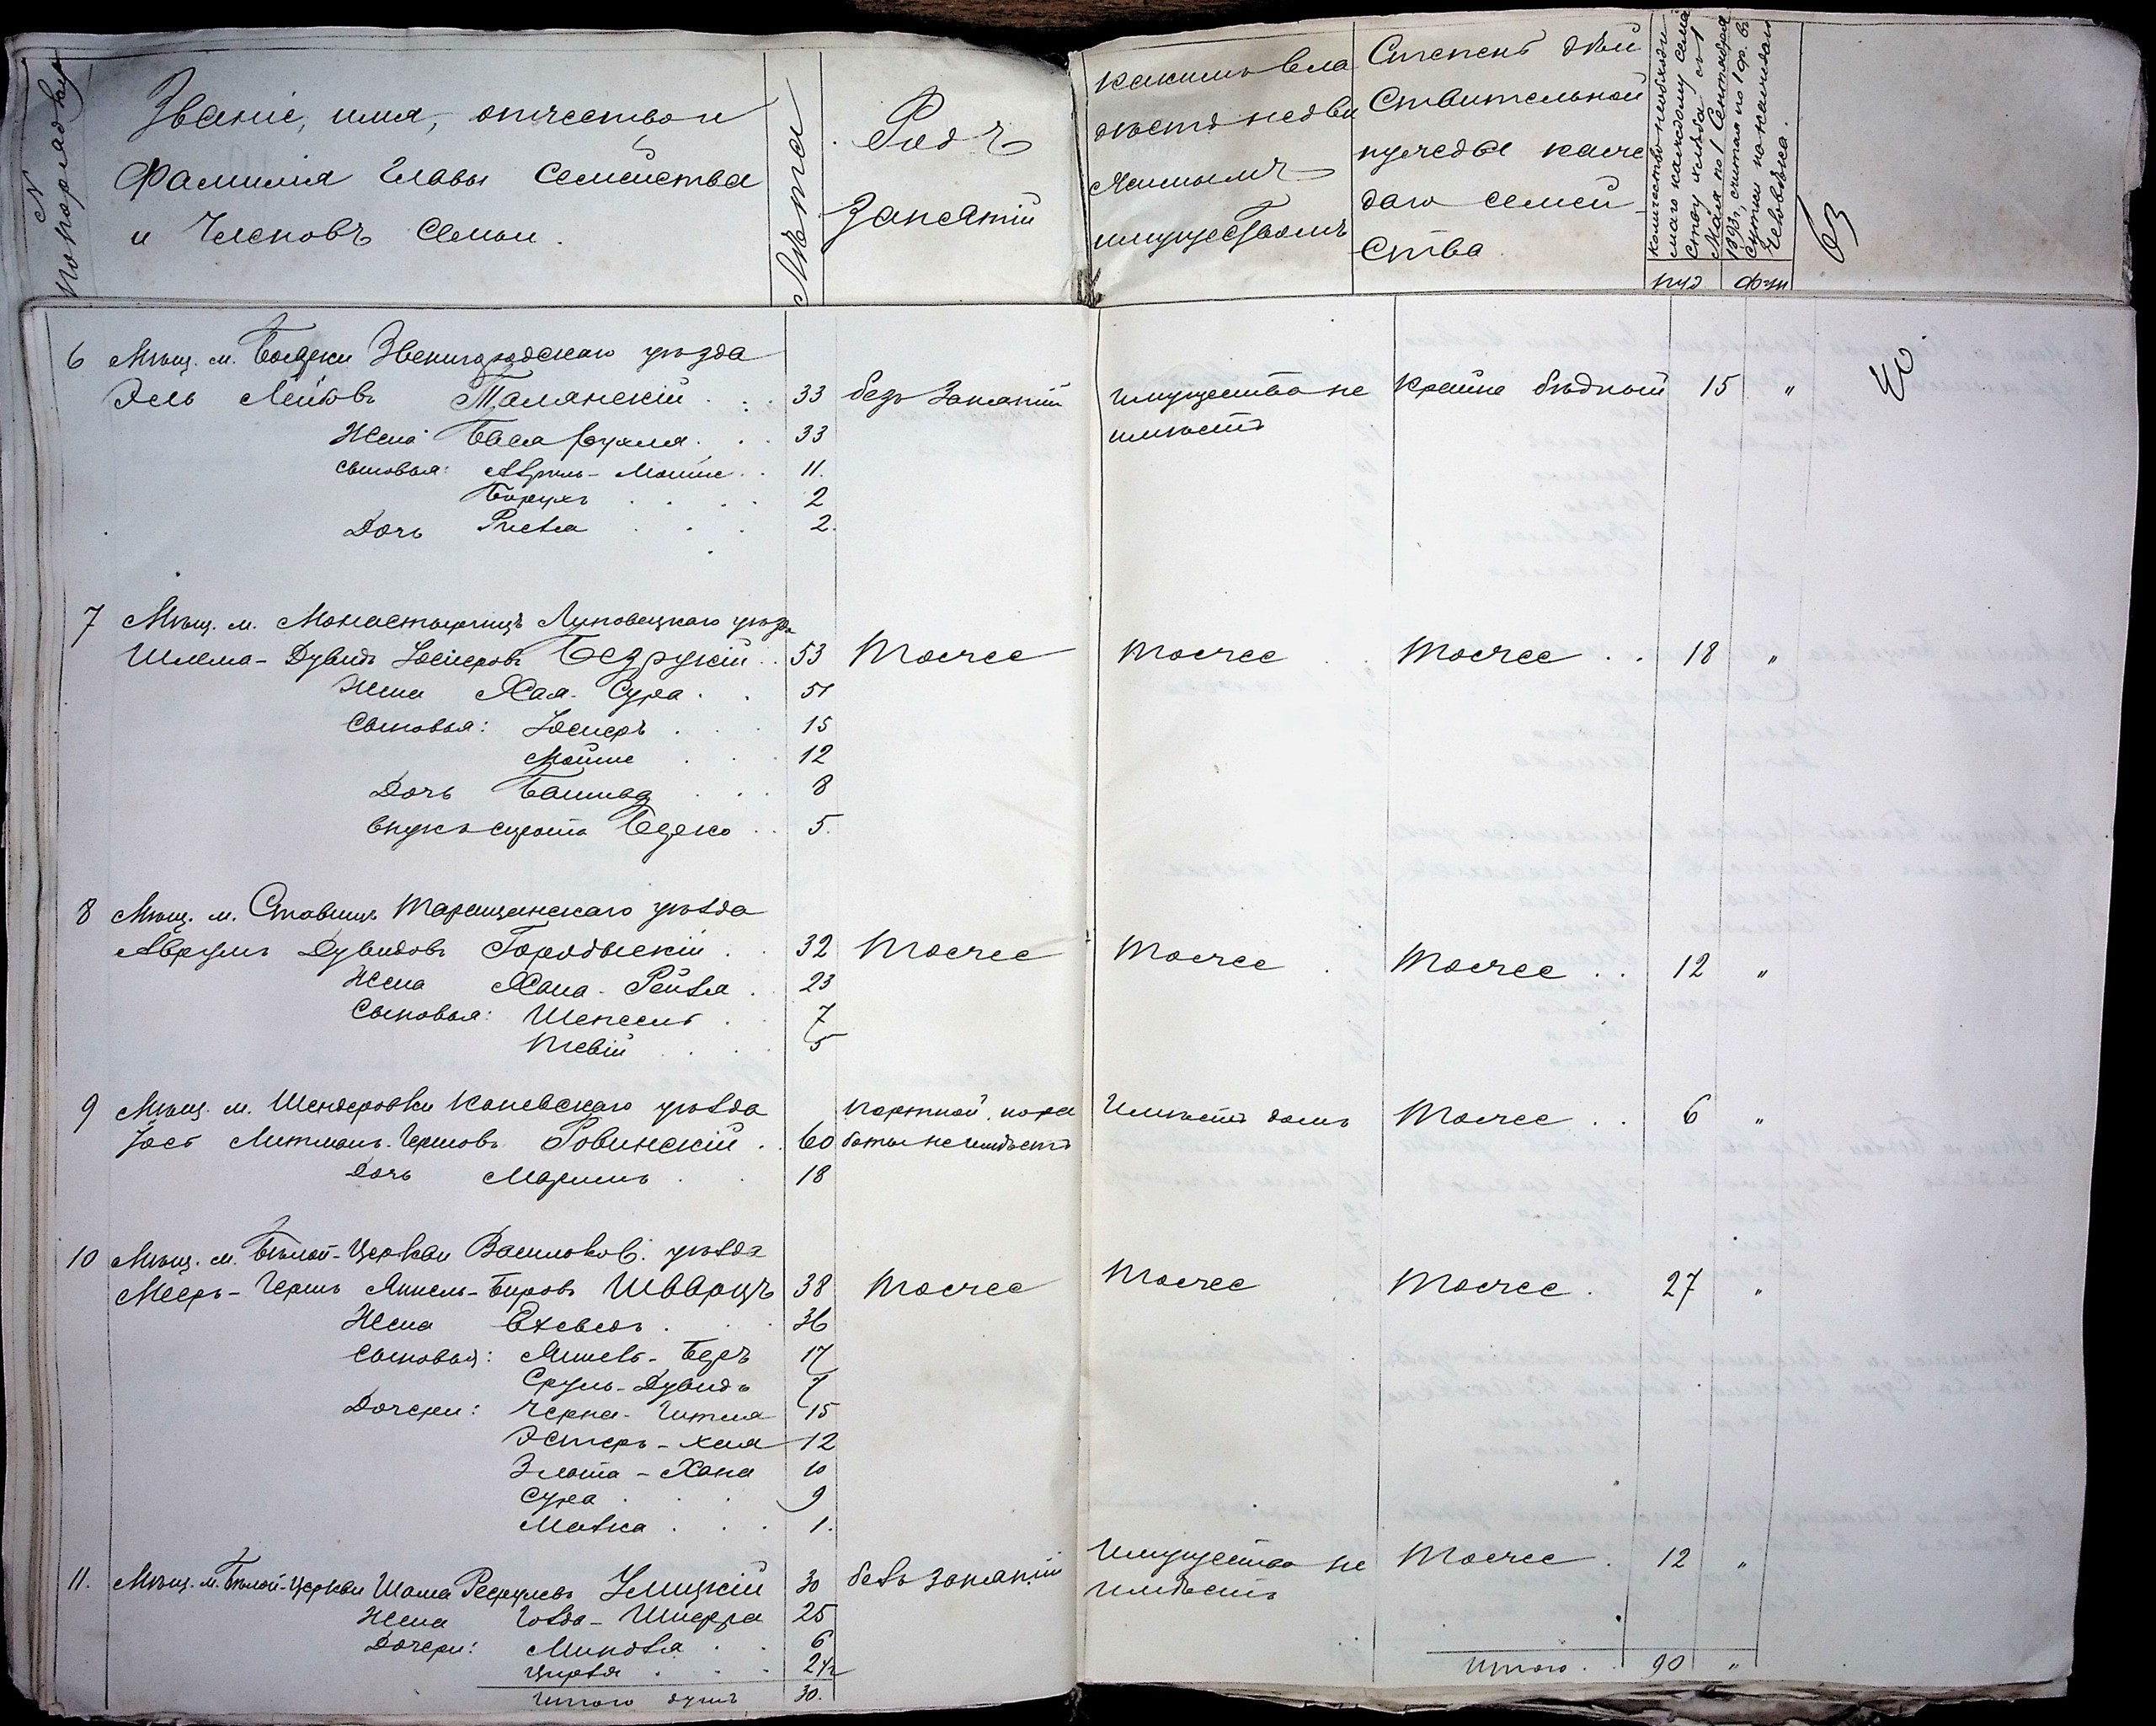 № по порядку
Званіе, имя, отчество и
фамилія главы семейства
и членовъ семьи.
Лѣта
Родъ
занятій
какимъ вла
дѣетъ недви
жимымъ
имуществомъ
Степень дѣй
ствительной
нужды каж
даго семей
ства
количество необходи
маго каждому семей
ству хлѣба съ 1
Мая по 1 Сентября
1893 г., считая по 1 ф. въ
сутки на каждаго
человѣка.
пуд фун
63
6 Мѣщ. м. Звенигородскаго уѣзда
Эль Лейбовъ Талянскій 33 безъ занятій имущества не крайне бѣдный 15 "
имѣетъ
40
Жена Бася Рухля 33
сыновья: Аврумъ-Мошко 11.
Борухъ 2
Дочь Ривка 2.
7 Мѣщ. м. Монастырищъ Липовецкаго уѣзда
Шлема-Дувидъ Іосперовъ Безрукій 53 Тоже Тоже Тоже 18 "
Жена Хая-Сура 51
Сыновья: Іосперъ 15
Мойше 12
Дочь 8
внукъ сирота Берко 5.
8 Мѣщ. м. Ставищъ Таращанскаго уѣзда
Аврумъ Дувидовъ Городыскій 32 Тоже Тоже Тоже 12 "
Жена Хана-Рейзя 23
Сыновья: 7
Тевій 5
9 Мѣщ. м. Шендеровки Каневскаго уѣзда портной, но ра Имѣетъ домъ Тоже 6 "
Іось Литманъ-Гершовъ Ровинскій 60 боты не имѣетъ
Дочь Маріимъ 18
10 Мѣщ. м. Бѣлой-Церкви Васильков. уѣзда
Мееръ-Гершъ Анкель-Беровъ Шварцъ 38 Тоже Тоже Тоже 27 "
Жена 36
Сыновья: Анкель-Беръ 17
Сруль-Дувидъ 7
Дочери: Черна-Гитля 15
Эстеръ-Хая 12
Злота-Хана 10
Сура 9
Малка 1.
11. Мѣщ. м. Бѣлой-Церкви Шама 30 безъ занятій Имущества не Тоже 12 "
имѣетъ
Жена Голда-Шифра 25
Дочери: Миндля 6
Цирля 2 1/2
Итого душъ 30.
Итого 90 "